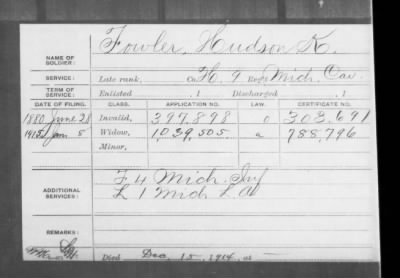 NAME OF SOLDIER: Fowler, Hudson K.
SERVICE: Late rank, Co. H, 9 Reg't Mich. Cav.
TERM OF SERVICE: Enlisted , 1 Discharged , 1
DATE OF FILING. CLASS. APPLICATION NO. LAW. CERTIFICATE NO.
1880 June 28 Invalid, 397,898 303,691
1915 Jan 5 Widow, 1,039,505 a 788,796
Minor,
ADDITIONAL SERVICES: F 4 Mich. Inf
L 1 Mich L A
REMARKS:
Died Dec. 15, 1914, at —